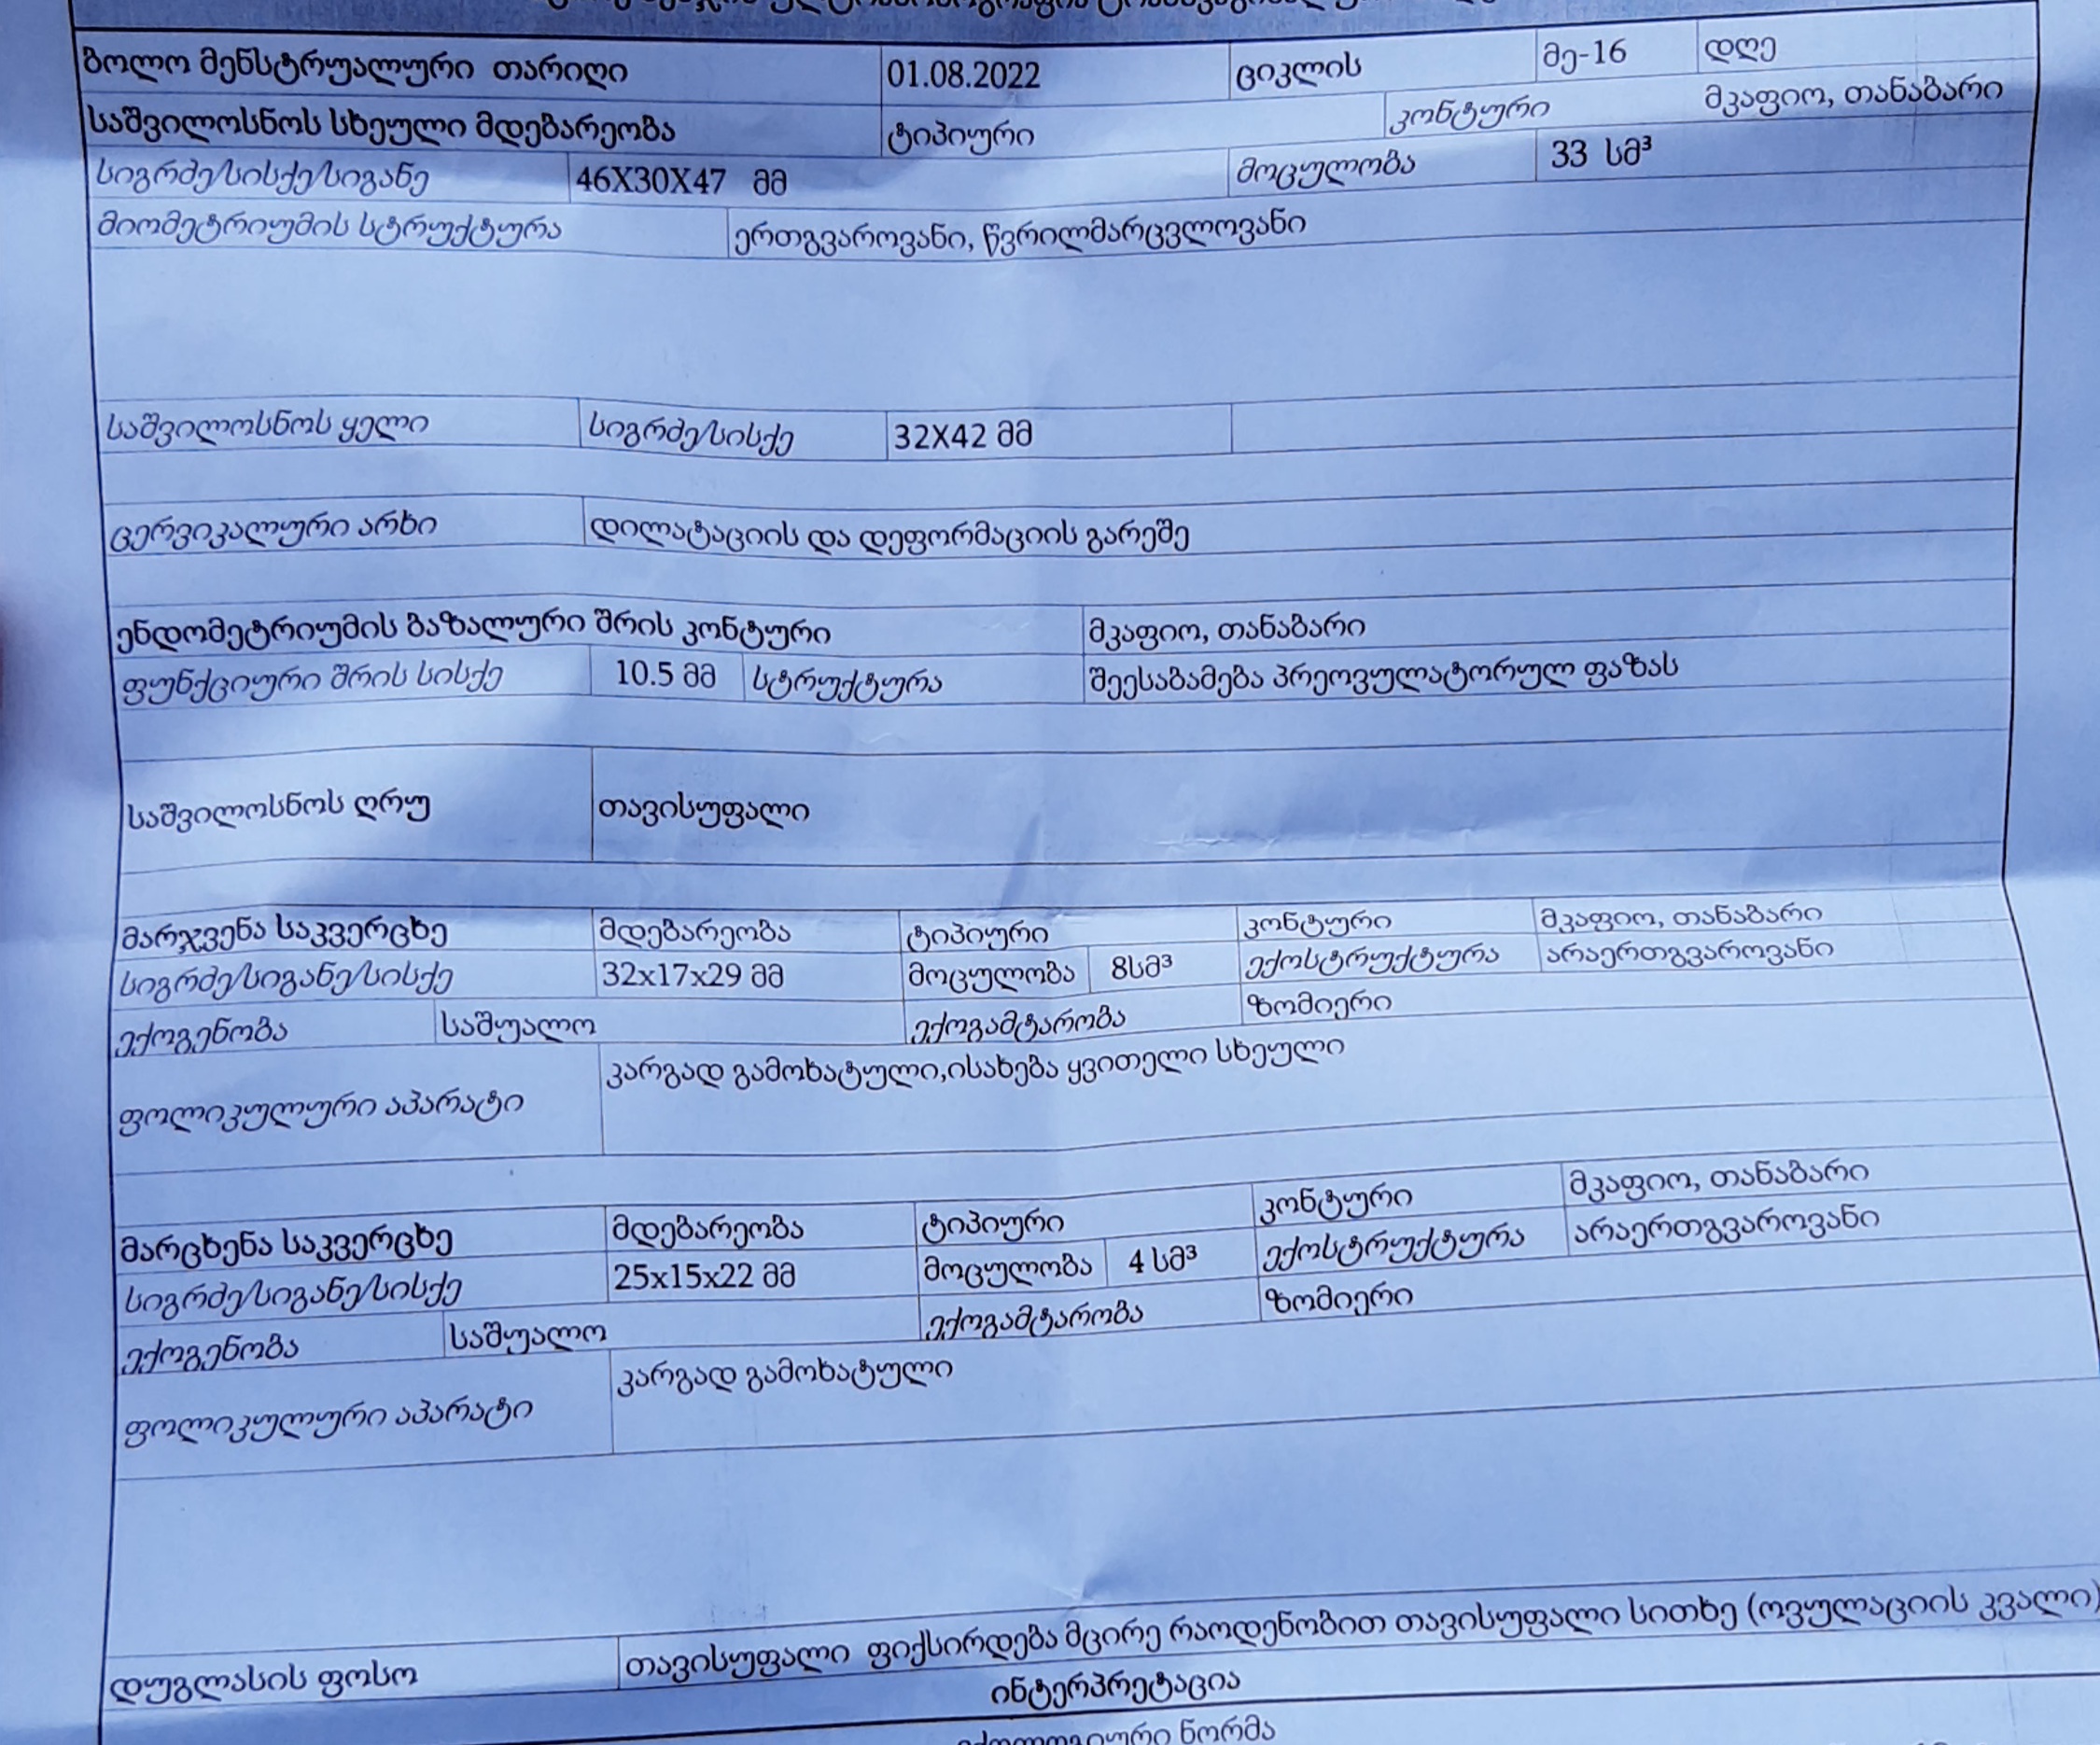 ბოლო მენსტრუალური თარიღი 01.08.2022 ციკლის მე-16 დღე
საშვილოსნოს სხეული მდებარეობა ტიპიური კონტური მკაფიო, თანაბარი
სიგრძე/სისქე/სიგანე 46X30X47 მმ მოცულობა 33 სმ³
მიომეტრიუმის სტრუქტურა ერთგვაროვანი, წვრილმარცვლოვანი
საშვილოსნოს ყელი სიგრძე/სისქე 32X42 მმ
ცერვიკალური არხი დილატაციის და დეფორმაციის გარეშე
ენდომეტრიუმის ბაზალური შრის კონტური მკაფიო, თანაბარი
ფუნქციური შრის სისქე 10.5 მმ სტრუქტურა შეესაბამება პრეოვულატორულ ფაზას
საშვილოსნოს ღრუ თავისუფალი
მარჯვენა საკვერცხე მდებარეობა ტიპიური კონტური მკაფიო, თანაბარი
სიგრძე/სიგანე/სისქე 32x17x29 მმ მოცულობა 8სმ³ ექოსტრუქტურა არაერთგვაროვანი
ექოგენობა საშუალო ექოგამტარობა ზომიერი
ფოლიკულური აპარატი კარგად გამოხატული,ისახება ყვითელი სხეული
მარცხენა საკვერცხე მდებარეობა ტიპიური კონტური მკაფიო, თანაბარი
სიგრძე/სიგანე/სისქე 25x15x22 მმ მოცულობა 4 სმ³ ექოსტრუქტურა არაერთგვაროვანი
ექოგენობა საშუალო ექოგამტარობა ზომიერი
ფოლიკულური აპარატი კარგად გამოხატული
დუგლასის ფოსო თავისუფალი ფიქსირდება მცირე რაოდენობით თავისუფალი სითხე (ოვულაციის კვალი)
ინტერპრეტაცია
ნორმა